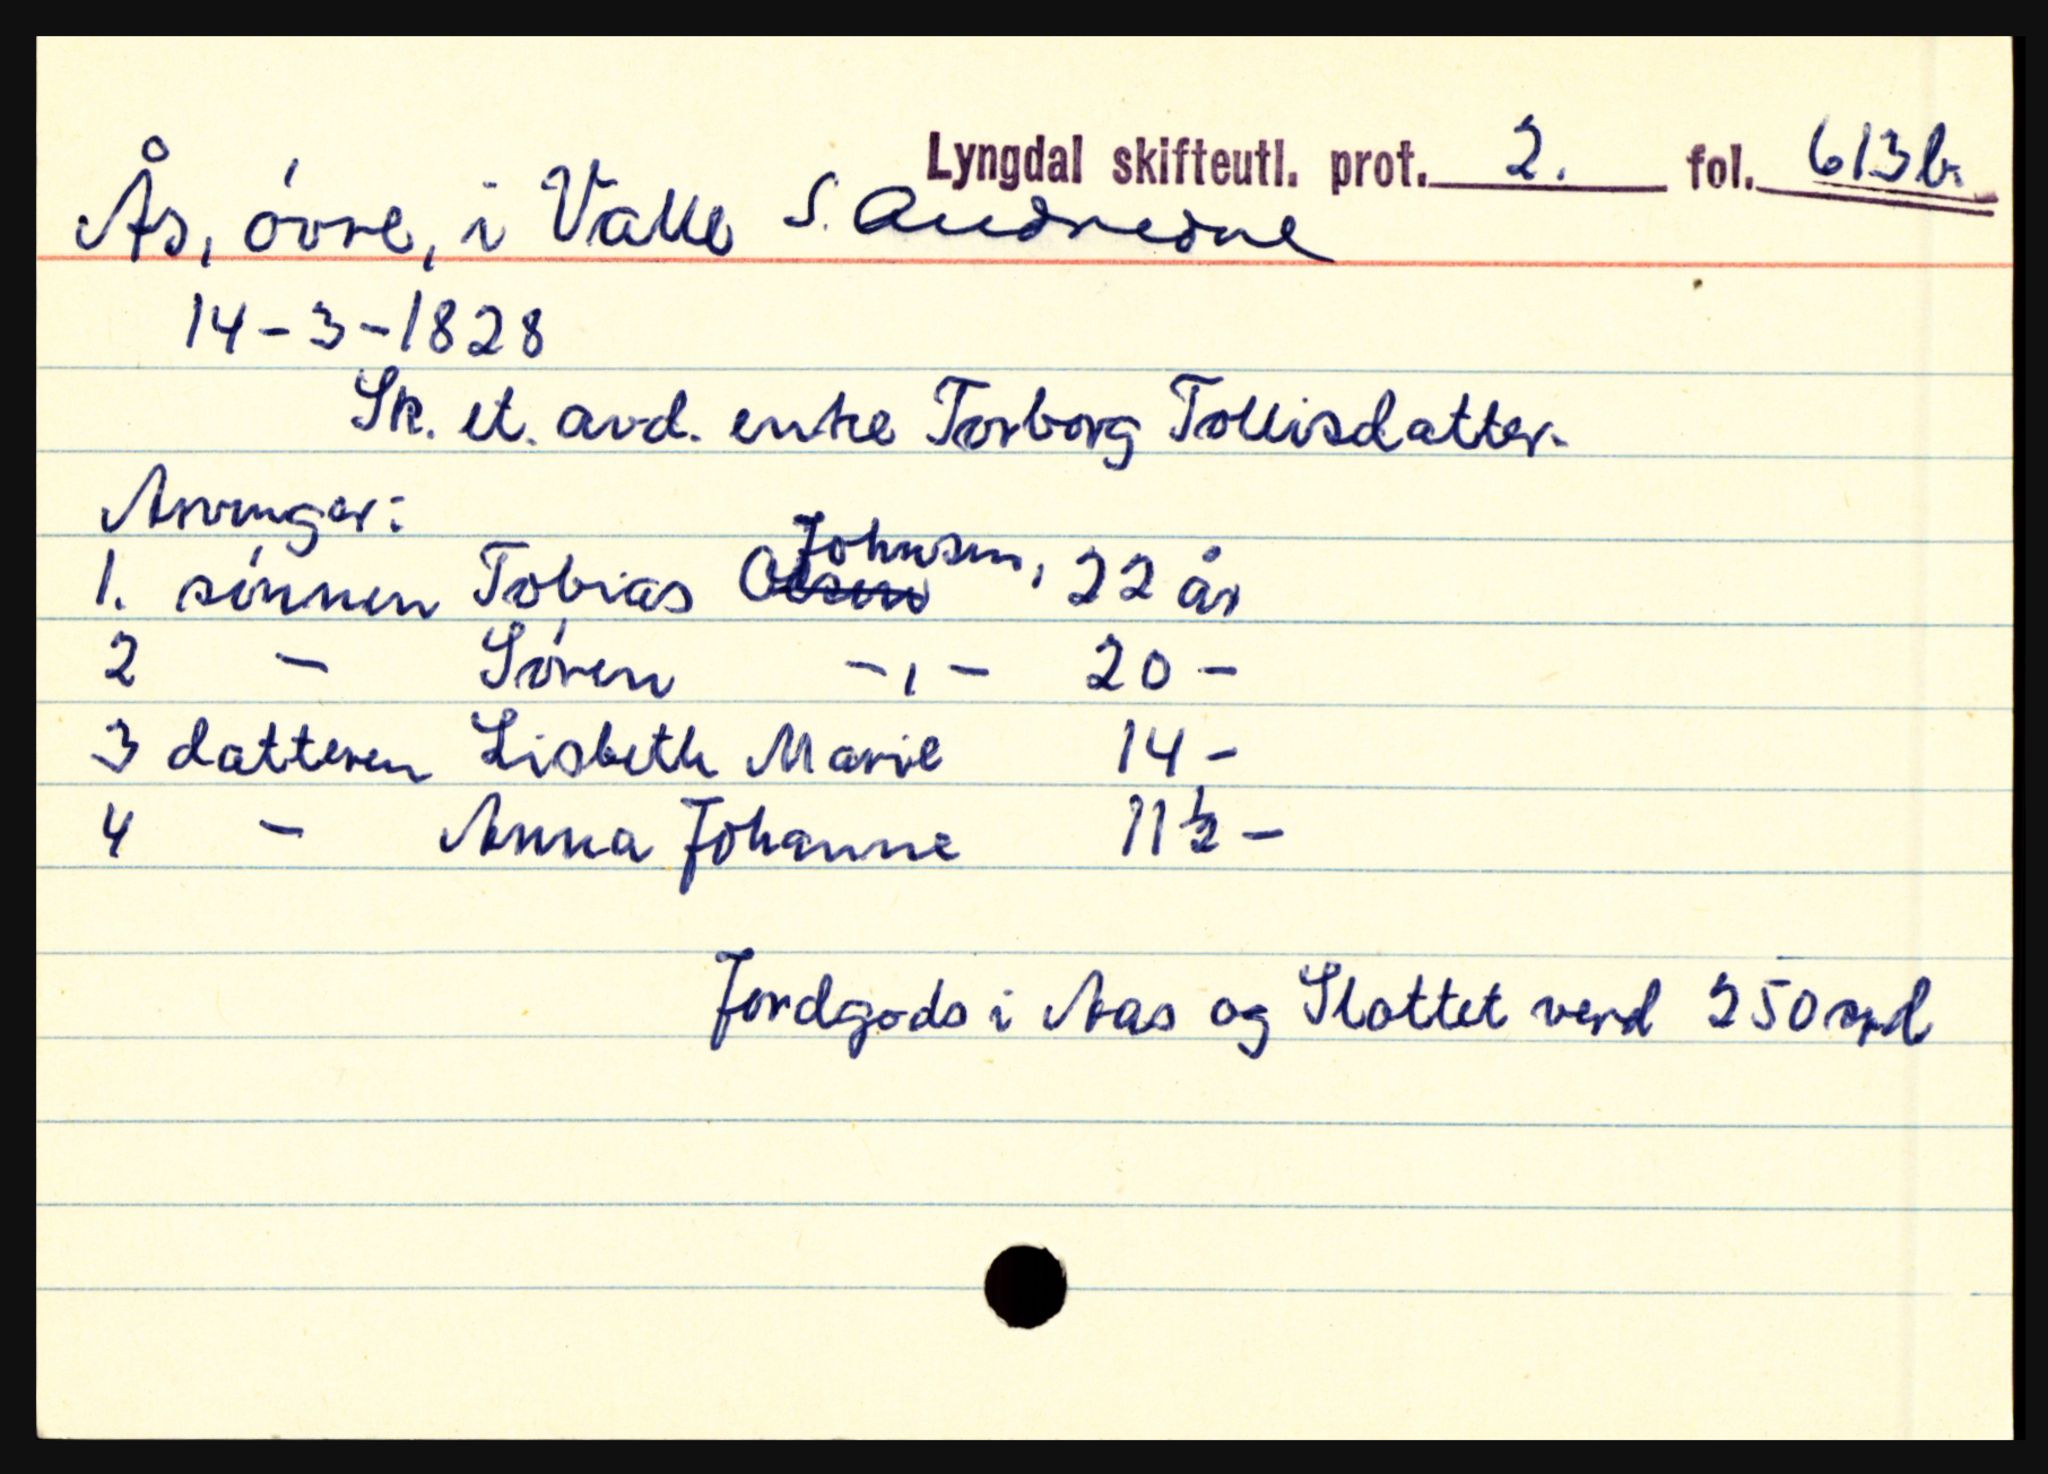 Lyngdal skifteutl. prot. 2. fol. 613b.
Ås, øvre, i Valle S. Audnedne
14-3-1828
Sk. et. avd. enke Torborg Tollisdatter.
Arvinger:
1. sønnen Tobias Olsen Johnsen, 22 år
2 - Søren -,- 20 -
3 datteren Lisbeth Marie 14 -
4 - Anna Johanne 11 ½ -
Jordgods i Aas og Slottet verd 250 spd